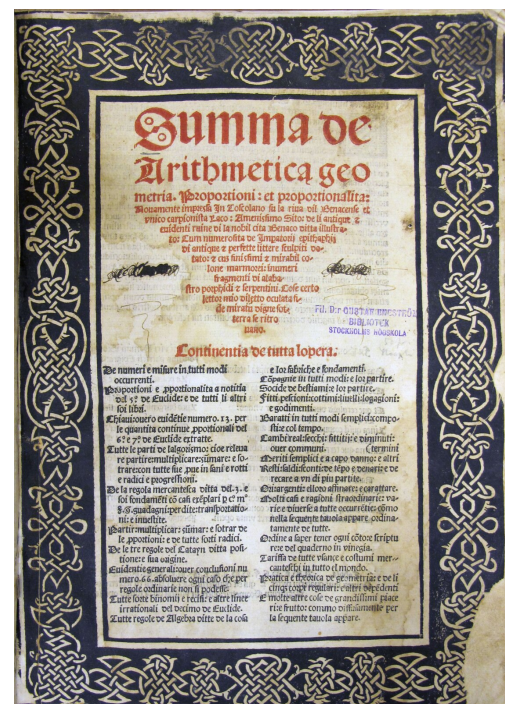 Summa de
Arithmetica geo
metria. Proportioni: et proportionalita:
Nouamente impressa In Toscolano su la riua dil Benacense et
vnico carpionista Laco: Amenissimo Sito: de li antique &
euidenti ruine di la nobil cita Benaco ditta illustra-
to: Cum numerosita de Imparatorij epithaphij
di antique e perfette littere sculpiti do-
tato: e cus finissimi e mirabil co-
lone marmorei: inumeri
fragmenti di alaba-
stro porphidi e serpentini. Cose certo
lettor mio diletto oculata fi-
de miratu digne sot-
terra se ritro
uano.
FIL. D:r GUSTAF ENESTRÖM
BIBLIOTEK
STOCKHOLMS HÖGSKOLA
Continentia de tutta lopera.
De numeri e misure in tutti modi
occurrenti.
Proportioni e ꝓportionalita a notitia
del 5º de Euclide: e de tutti li altri
soi libri.
Chiaui: ouero euidẽtie numero. 13. per
le quantita continue ꝓportionali del
6º e 7º de Euclide extratte.
Tutte le parti de lalgorismo: cioe releua
re partire: multiplicare: sũmar: e so-
trare: con tutte sue ꝓue in sani e rotti
e radici e progressioni.
De la regola mercantesca ditta del. 3. e
soi fondamẽti cõ casi exẽplari
guadagni: perdite: transportatio-
ni: e inuestite.
Partir: multiplicar: sũmar: e sotrar de
le ꝓportioni: e de tutte sorti radici.
De le tre regole del Catayn ditta posi-
tione: e sua origine.
Euidentie generali: ouer conclusioni nu
mero. 66. absoluere ogni caso che per
regole ordinarie non si podesse.
Tutte sorte binomij e recisi: e altre linee
irrationali del decimo de Euclide.
Tutte regole de Algebra ditte de la cosa
e lor fabriche e fondamenti.
Cõpagnie in tutti modi: e lor partire.
Socide de bestiami: e lor partire.
Fitti: pescioni: cottimi: liuelli: logagioni:
e godimenti.
Baratti in tutti modi semplici: compo-
sti: e col tempo.
Cambi: reali: secchi: fittitij: e diminuti:
ouer communi.
Meriti semplici e a capo danno: e altri
(termini
Resti: saldi: sconti: de tẽpo e denari: e de
recare a vn di piu partite.
Ori: argenti: e lloro affinare: e carattare.
Molti casi e ragioni straordinarie: va-
rie e diuerse a tutte occurrẽtie: cõmo
nella sequente tauola appare ordina-
tamente de tutte.
Ordine a saper tener ogni cõto: e scriptu
re: e del quaderno in vinegia.
Tariffa de tutte vsance e costumi mer-
canteschi in tutto el mondo.
Pratica e theorica de geometria: e de li
cinqʒ corpi regulari: e altri depẽdenti
E molte altre cose de grandissimi piace
ri: e frutto: commo diffusamente per
la sequente tauola appare.